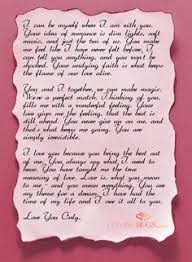 I can be myself when I am with you.
Your idea of romance is dim lights, soft
music, and just the two of us. You make
me feel like I have never felt before. I
can tell you anything, and you won't be
shocked. Your undying faith is what keeps
the flame of our love alive.
You and I together, we can make magic.
We're a perfect match. Thinking of you,
fills me with a wonderful feeling. Your
love gives me the feeling, that the best is
still ahead. You never give up on me, and
that's what keeps me going. You are
simply irresistible.
I love you because you bring the best out
of me. You always say what I need to
hear. You have taught me the true
meaning of love. Love is, what you mean
to me - and you mean everything. You are
my theme for a dream. I have had the time
of my life and I owe it all to you.
Love You Only,